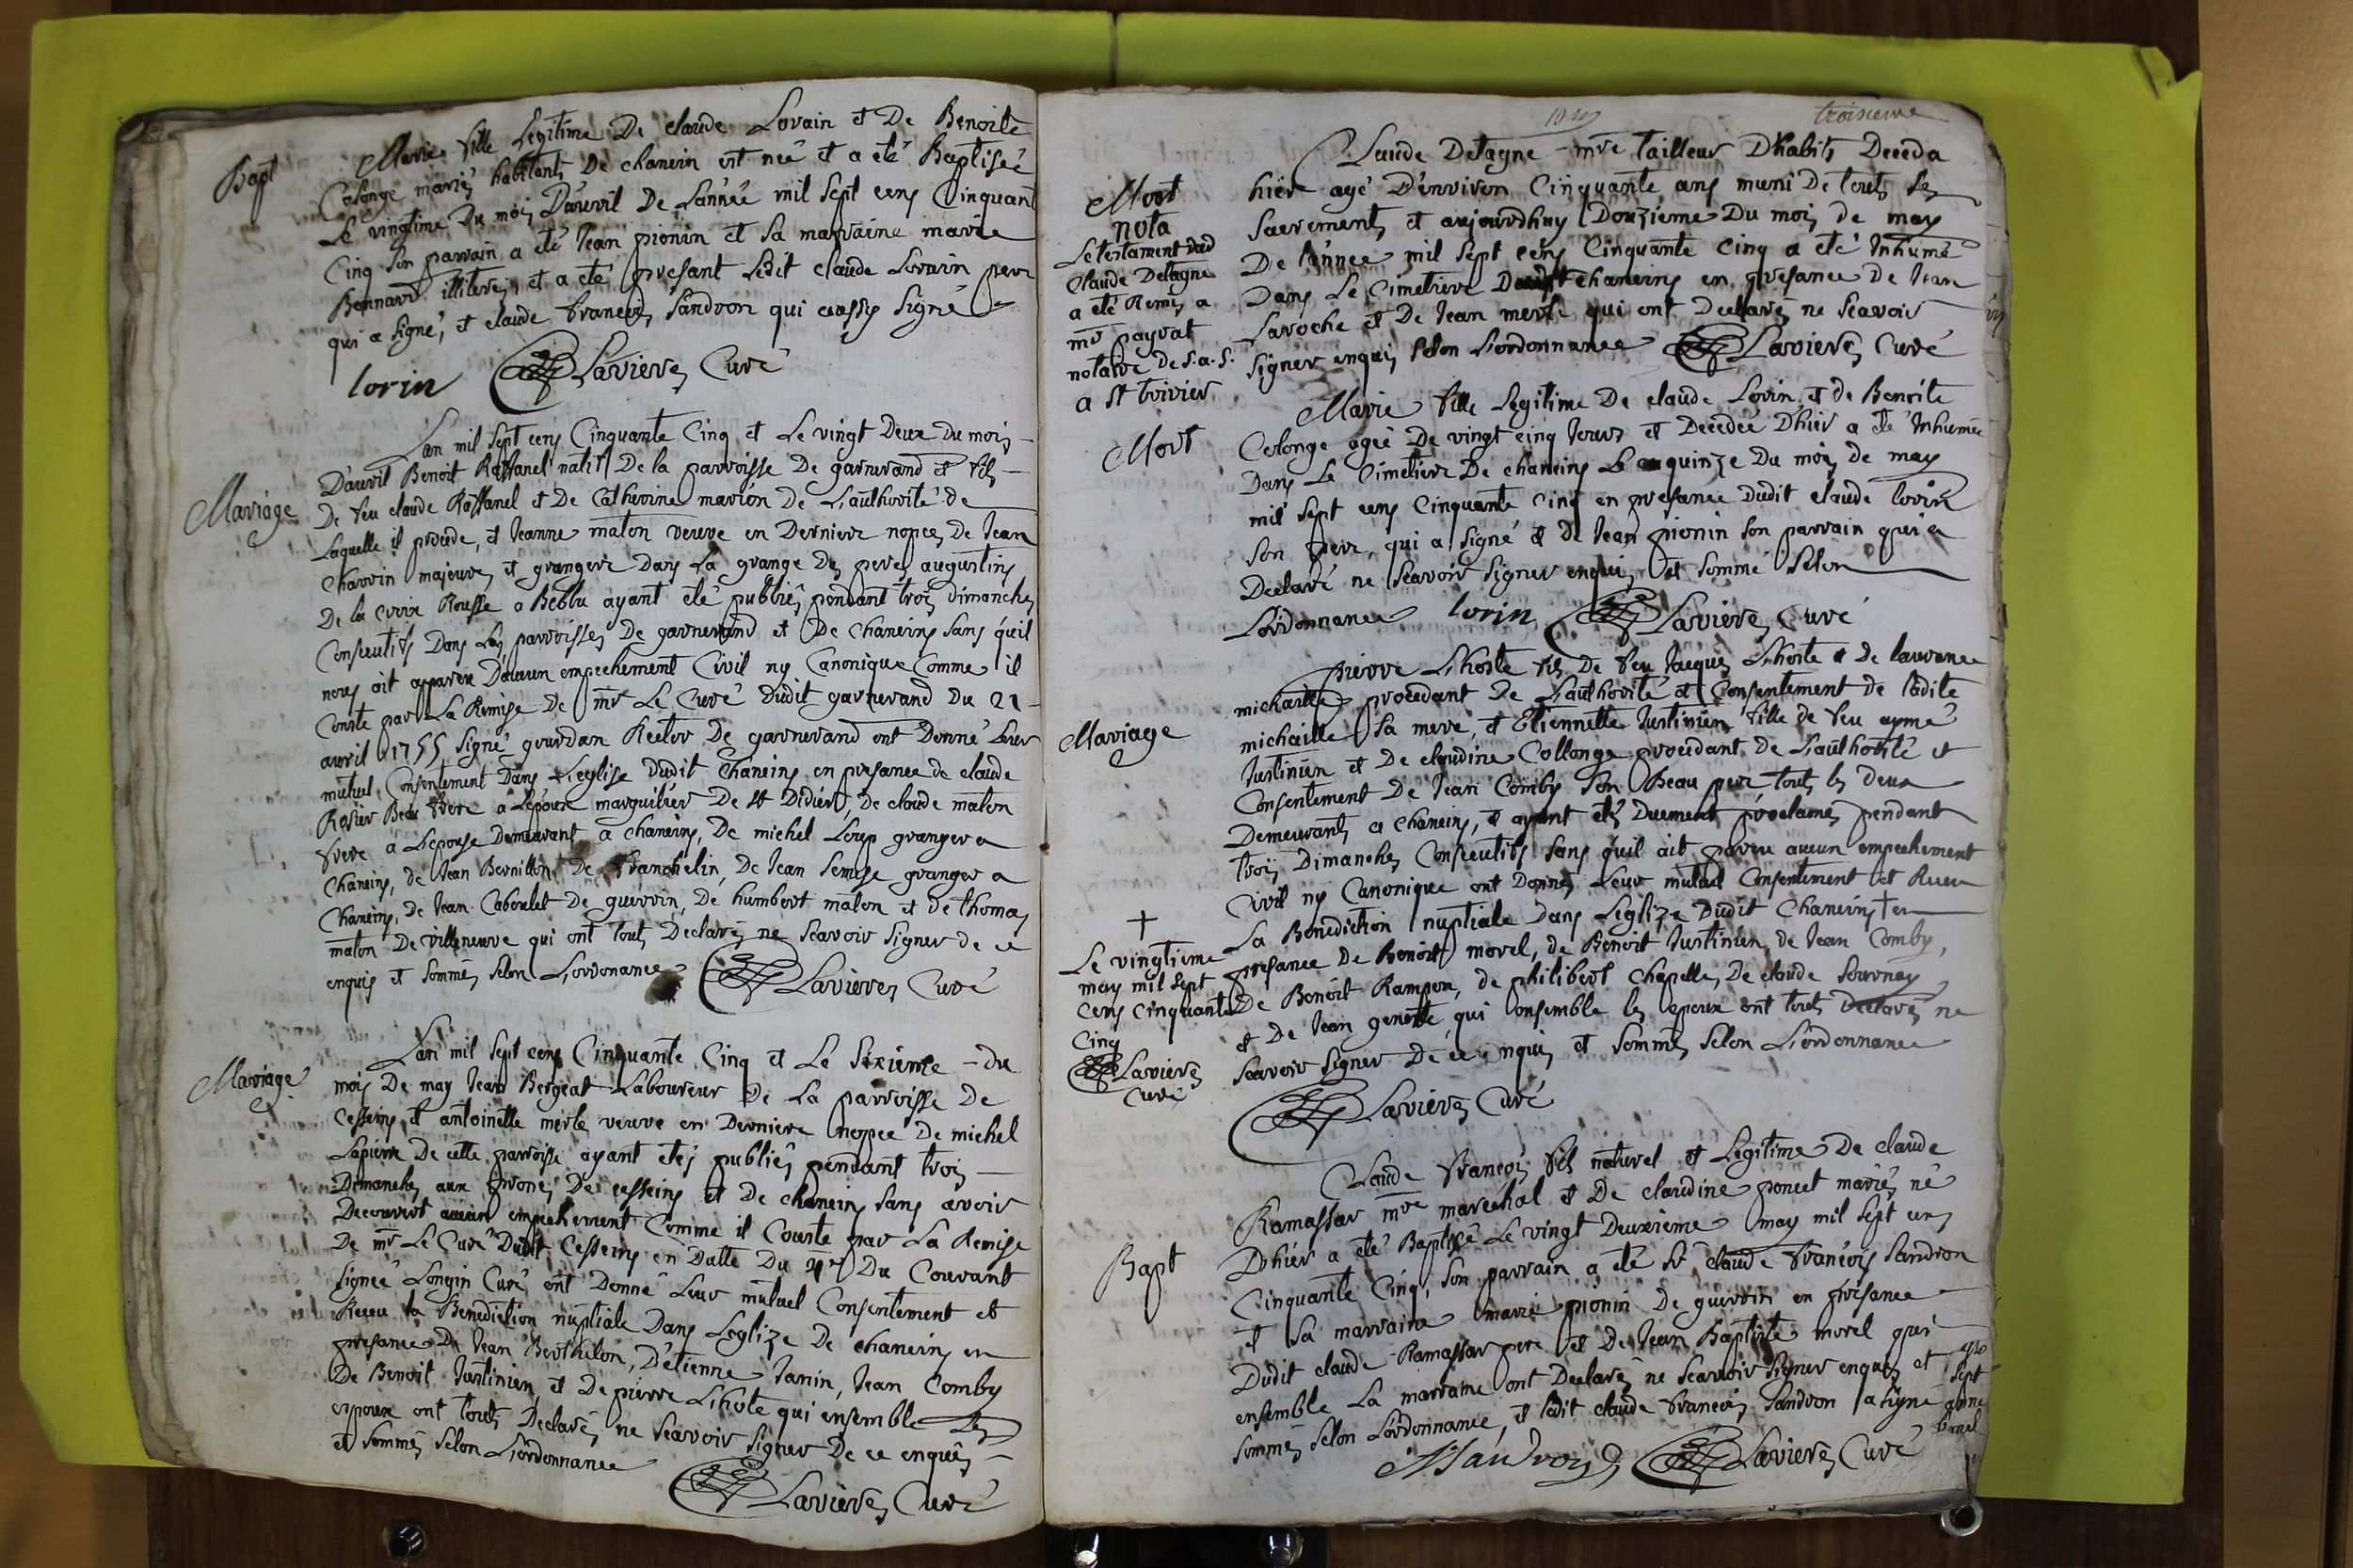 Bapt
Marie fille Legitime De claude Lorain et De Benoite
Colonge mariés habitants De chanein est neé et a eté Baptiseé
Le vingtime Du mois D'auvril De L'anneé mil sept cens Cinquant
Cinq son parrain a eté Jean pionin et sa marraine marie
Bonnard illiterés, et a eté present Ledit claude Lorain pere
qui a signé, et claude francois Sandron qui aussy signé
lorin Lavieres Curé
Mariage
Lan mil sept cens Cinquante Cinq et Le vingt Deux du mois
D'auvril Benoit Raffanel natif De la parroisse De garnerand et fils
De feu claude Raffanel et De Catherine marion De L'authorité de
Laquelle il procede, et Jeanne malon veuve en Derniere nopces De Jean
Charvin majeure, et grangere Dans La grange Des peres augustins
De la croix Rousse a ayant eté publiés pendant trois dimanches
Consecutifs Dans Les parroisses De garnerand et De Chaneins sans qu'il
nous ait apparu D'aucun empechement Civil ny Canonique Comme il
Conste par La Remise De mr Le Curé Dudit garnerand Du 21
avril 1755 signé gourdan Rector De garnerand ont Donné Leur
mutuel Consentement Dans L'eglise Dudit Chaneins en presance de claude
Rosier Beau frere a L'epoux marguilier De st Didier, De claude malon
frere a L'epouse Demeurant a chaneins, De michel Loup granger a
Chaneins, de Jean Bernillon De franchelin, De Jean granger a
Chaneins, de Jean Caboulet De guerrin, De humbert malon et de thomas
malon De villeneuve qui ont touts Declarés ne scavoir signer de ce
enquis et sommés selon L'ordonance Lavieres Curé
Mariage
Lan mil sept cens Cinquante Cinq et Le sixieme du
mois De may Jean Bergeat Laboureur De La parroisse De
Cesseins et antoinette merle veuve en Derniere nopce De michel
Lapierre De cette parroisse ayant etés publiés pendant trois
Dimanches aux prones De cesseins et de chaneins sans avoir
Decouvert aucun empechement Comme il Conste par La Remise
De mr Le Curé Dudit Cesseins en Datte Du Du Courant
signeé Longin Curé ont Donné Leur mutuel Consentement et
Receu la Benediction nuptiale Dans L'eglize De chaneins en
presance De Jean Berthelon, D'etienne Janin, Jean Comby
De Benoit Justinien et De pierre Lhote qui ensemble Les
expoux ont touts Declarés ne scavoir signer De ce enquis
et sommés selon L'ordonnance
Lavieres Curé
troisieme
Mort
nota
Le testament dud
Claude Detagne
a eté Remis a
mr payrat
notaire de S.A.S.
a st trivier
Claude Detagne mre tailleur D'habits Deceda
hier agé D'environ Cinquante ans muni De touts les
sacrements et aujourdhuy Douzieme Du mois de may
De l'annee mil sept cens Cinquante cinq a eté Inhumé
Dans Le Cimetiere chaneins en presance de Jean
Laroche et De Jean merle qui ont Declarés ne scavoir
signer enquis selon L'ordonnance Lavieres Curé
Mort
Marie fille Legitime De claude Lorin et de Benoite
Colonge ageé De vingt cinq jours et Decedeé D'hier a eté Inhumeé
Dans Le Cimetiere De chaneins Le quinze Du mois de may
mil sept cens Cinquante Cinq en presance Dudit claude lorin
son pere, qui a signé et de Jean pionin son parrain qui a
Declaré ne scavoir signer enquis et sommé selon
L'ordonnance lorin Lavieres Curé
Mariage
pierre Lhoste fils De feu Jacques Lhoste et de laurance
michaille procedant De L'authorité et Consentement de ladite
michaille sa mere, et Etiennette Justinien fille de feu aymé
Justinien et De claudine Collonge procedant de L'authorité et
Consentement De Jean Comby son Beau pere touts les Deux
Demeurants a Chaneins, et ayant etés Duement proclamés pendant
trois Dimanches Consecutifs sans qu'il ait paru aucun empechement
Civil ny Canonique ont Donnés Leur mutuel Consentement et Receu
La Benediction nuptiale Dans L'eglize Dudit Chaneins + en
presance De Benoit morel, de Benoit Justinien, de Jean Comby,
De Benoit Rampon, de philibert Chapelle, De claude Journay
et De Jean genette qui Consemble les epoux ont touts Declarés ne
scavoir signer De ce enquis et sommés selon L'ordonnance
Lavieres Curé
+
Le vingtieme
may mil sept
cens cinquante
Cinq
Lavieres
Curé
Bapt
Claude francois fils naturel et Legitime De claude
Ramassar mre marechal et De claudine poncet mariés né
D'hier a eté Baptisé Le vingt Deuxieme may mil sept cens
Cinquante Cinq, son parrain a eté sr claude francois Sandron
et sa marraine marie pionin De guerrin en presance
Dudit claude Ramassar pere et De Jean Baptiste morel qui
ensemble La marraine ont Declarés ne scavoir signer enquis et
sommés selon L'ordonnance, et ledit claude francois Sandron a signé
Sandron Lavieres Curé